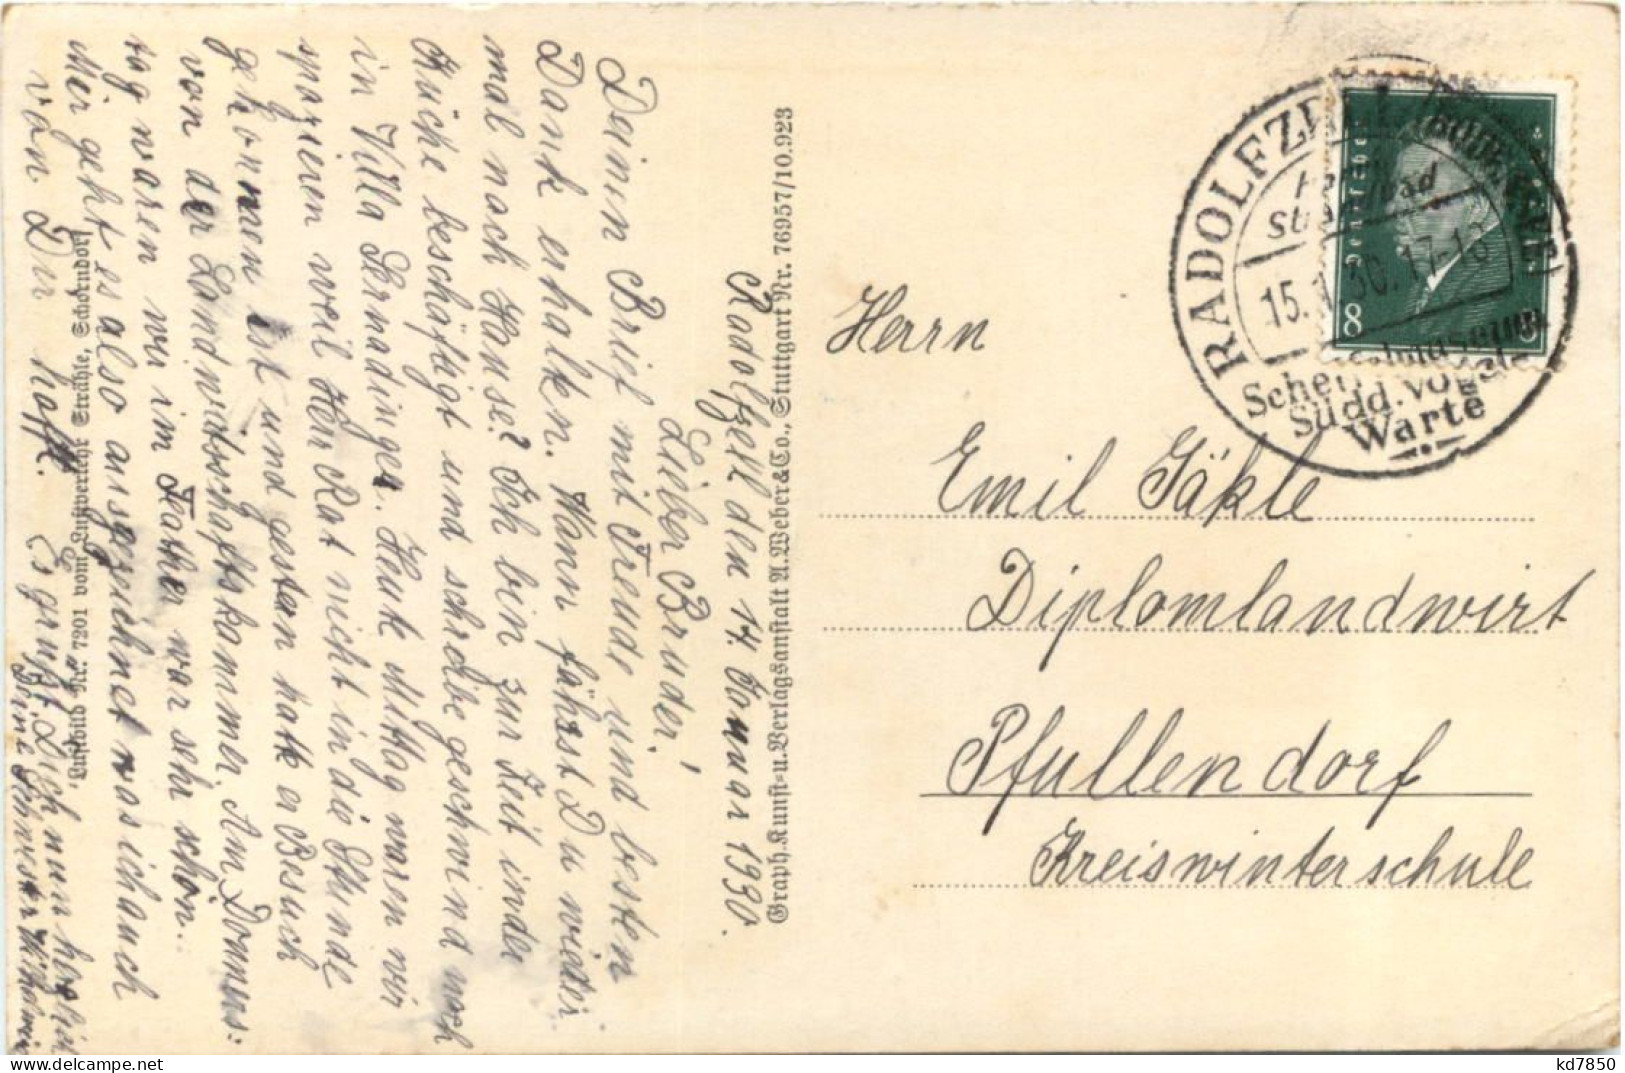 Radolfzell den 14. Januar 1930.
Lieber Bruder!
Deinen Brief mit Freude und besten
Dank erhalten. Wann fährst Du wieder
mal nach Hause? Ich bin zur Zeit in der
Küche beschäftigt und schreibe geschwind noch
in Villa Sernadinger. Heute Mittag waren wir
spazieren weil Herr Rat nicht in die Stunde
gekommen ist und gestern hatte er Besuch
von der Landwirtsschaftskammer. Am Donners-
tag waren wir im Teather war sehr schön.
Mir geht es also ausgezeichnet was ich auch
von Dir hoffe. Es grüßt Dich nun herzlich
Deine Schwester
Luftbild Nr. 7201 vom Luftverkehr Strähle, Schorndorf
Graph. Kunst- u. Verlagsanstalt A. Weber & Co., Stuttgart Nr. 76957/10.923
RADOLFZELL
15.1.30. 17-18
Südd. Vogel-
Warte
8
8
Herrn
Emil Jäkle
Diplomlandwirt
Pfullendorf
Kreiswinterschule
kd7850